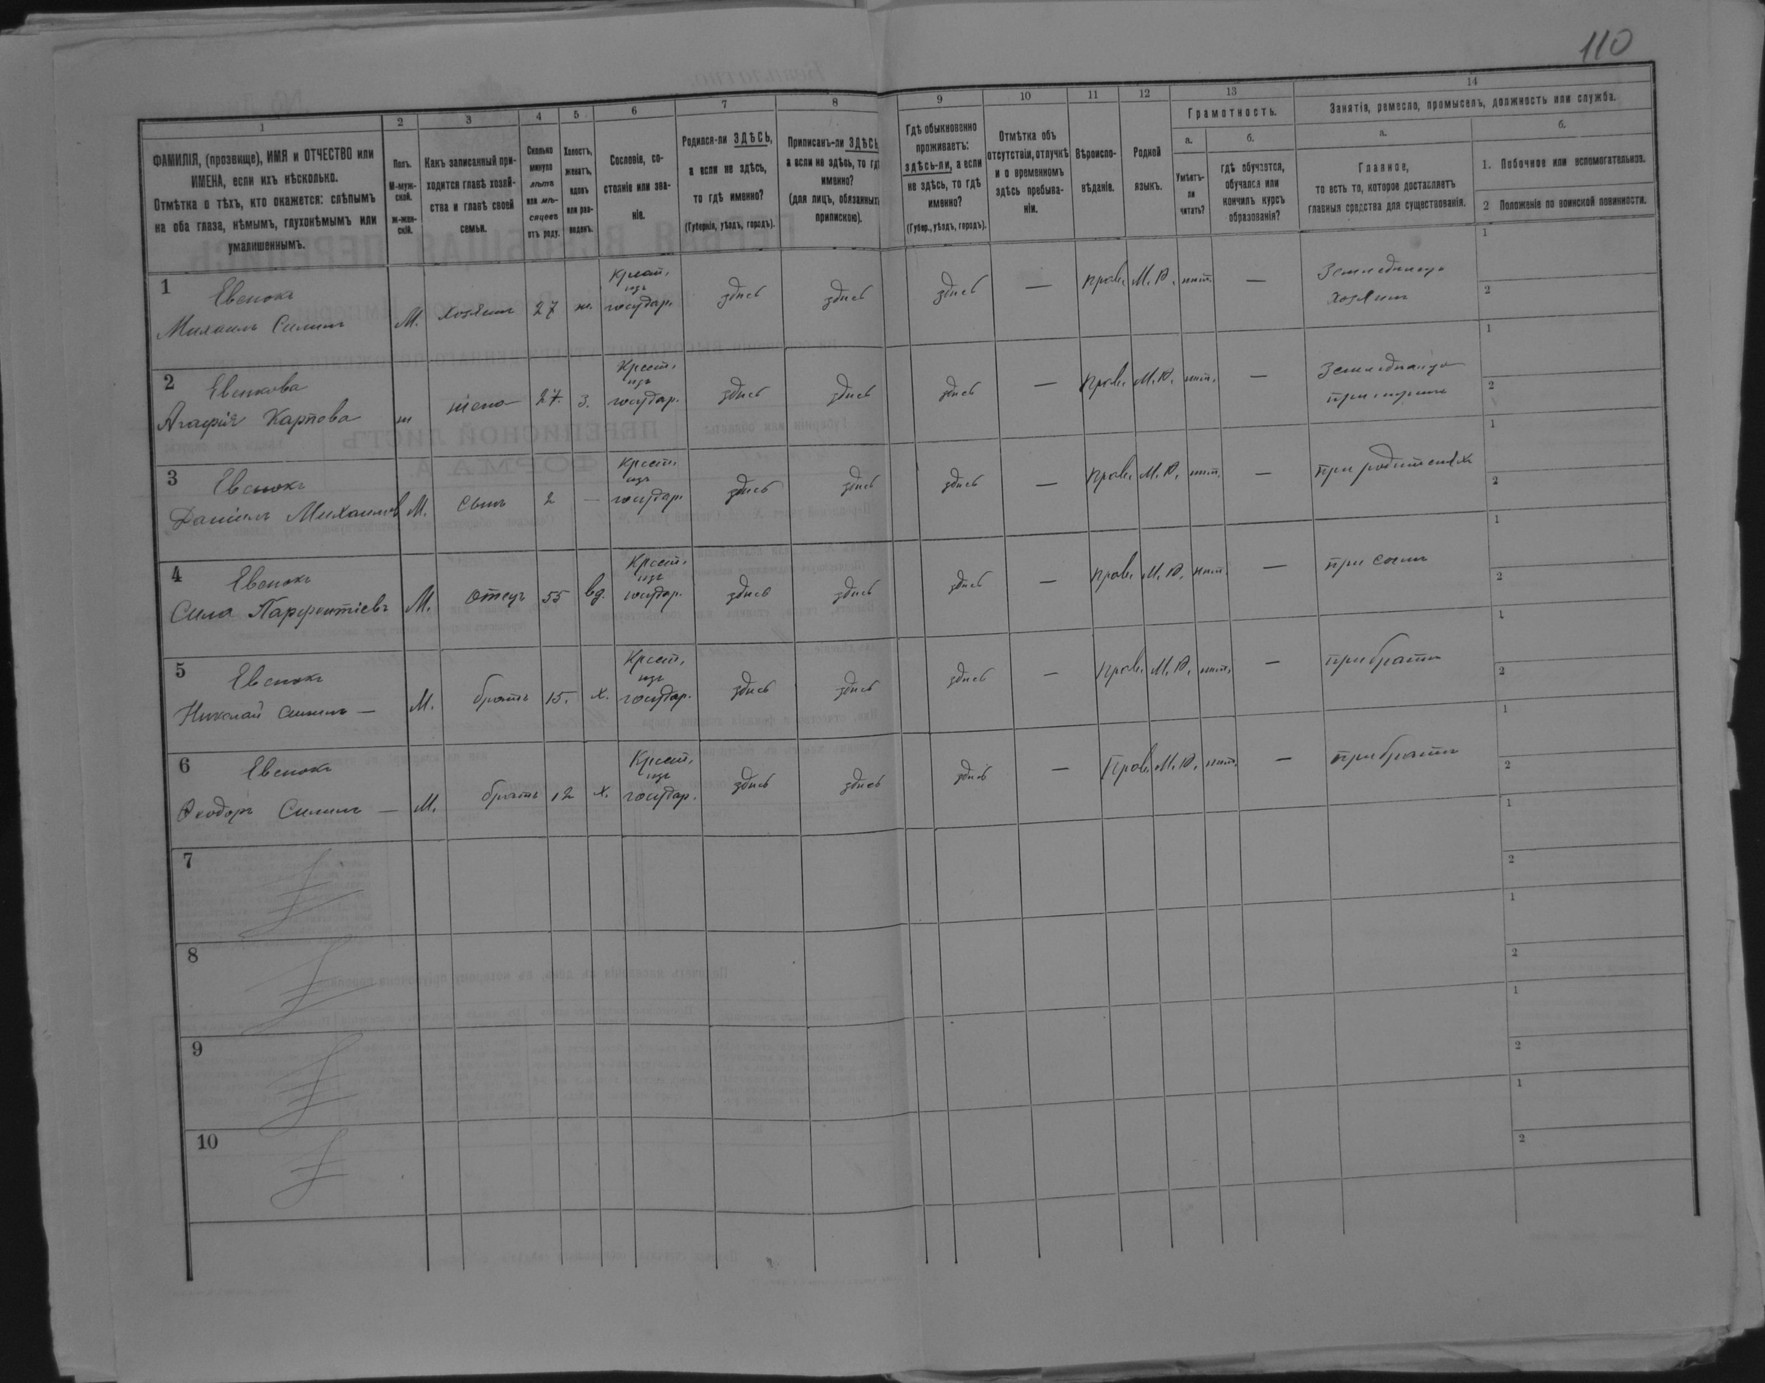 110
1 2 3 4 5 6 7 8 9 10 11 12 13 14
ФАМИЛІЯ, (прозвище), ИМЯ и ОТЧЕСТВО или
ИМЕНА, если ихъ нѣсколько.
Отмѣтка о тѣхъ, кто окажется: слѣпымъ
на оба глаза, нѣмымъ, глухонѣмымъ или
умалишеннымъ.
Полъ.
М-муж-
ской.
Ж-жен-
скій.
Какъ записанный при-
ходится главѣ хозяй-
ства и главѣ своей
семьи.
Сколько
минуло
лѣтъ
или мѣ-
сяцевъ
отъ роду.
Холостъ,
женатъ,
вдовъ
или раз-
веденъ.
Сословіе, со-
стояніе или зва-
ніе.
Родился-ли ЗДѢСЬ,
а если не здѣсь,
то гдѣ именно?
(Губернія, уѣздъ, городъ).
Приписанъ-ли ЗДѢСЬ,
а если не здѣсь, то гдѣ
именно?
(для лицъ, обязанныхъ
припискою).
Гдѣ обыкновенно
проживаетъ:
здѣсь-ли, а если
не здѣсь, то гдѣ
именно?
(Губер., уѣздъ, городъ).
Отмѣтка объ
отсутствіи, отлучкѣ
и о временномъ
здѣсь пребыва-
ніи.
Вѣроиспо-
вѣданіе.
Родной
языкъ.
Грамотность.
а.
Умѣетъ-
ли
читать?
б.
Гдѣ обучается,
обучался или
кончилъ курсъ
образованія?
Занятія, ремесло, промыселъ, должность или служба.
а.
Главное,
то есть то, которое доставляетъ
главныя средства для существованія.
б.
1. Побочное или вспомогательное.
2 Положеніе по воинской повинности.
1 Евенокъ
Михаилъ Силинъ М. хозяинъ 27 ж. Крест. изъ государ. здѣсь здѣсь здѣсь — Прав. М.Р. нѣтъ —
Хозяинъ
1
2
2 Евенкова
Агафія Карпова ж жена 27 з. Крест. изъ государ. здѣсь здѣсь здѣсь — Прав. М.Р. нѣтъ —
при мужѣ
1
2
3 Евенокъ
Даніилъ Михаиловъ М. сынъ 2 — Крест. изъ государ. здѣсь здѣсь здѣсь — Прав. М.Р. нѣтъ — при родителяхъ
1
2
4 Евенокъ
Сила Парфентіевъ М. отецъ 55 вд. Крест. изъ государ. здѣсь здѣсь здѣсь — Прав. М.Р. нѣтъ — при сынѣ
1
2
5 Евенокъ
Николай Силинъ — М. братъ 15. х. Крест. изъ государ. здѣсь здѣсь здѣсь — Прав. М.Р. нѣтъ — при братѣ
1
2
6 Евенокъ
Ѳеодоръ Силинъ — М. братъ 12 х. Крест. изъ государ. здѣсь здѣсь здѣсь — Прав. М.Р. нѣтъ — при братѣ
1
2
7
1
2
8
1
2
9
1
2
10
1
2